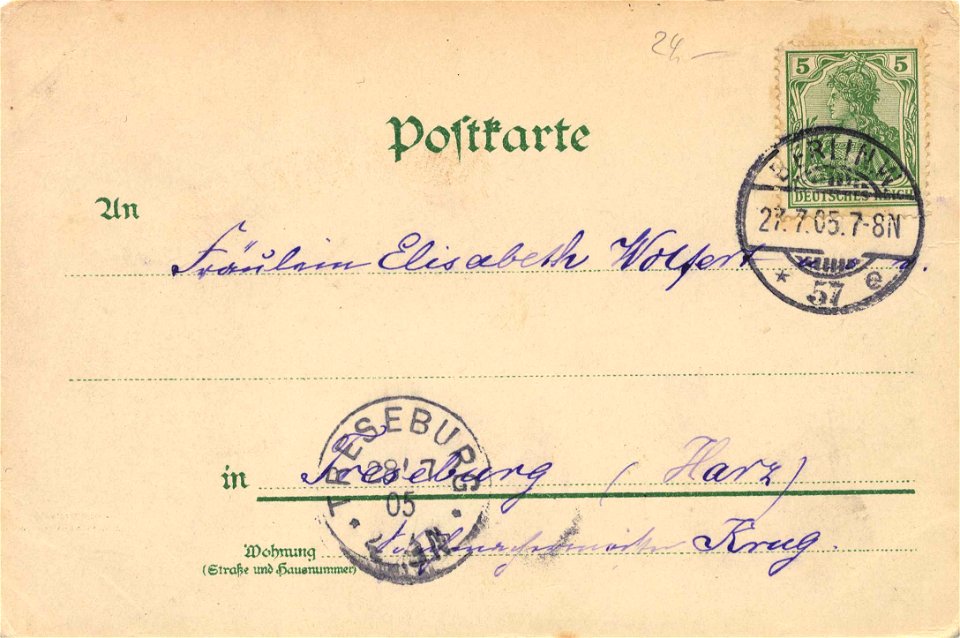 24,—
5 5
Postkarte
DEUTSCHES REICH
BERLIN W
27.7.05.7-8N
* 57 e
An
Fräulein Elisabeth Wolfert
TRESEBURG
28 7
05
N
in Treseburg (Harz)
Wohnung Krug.
(Straße und Hausnummer)